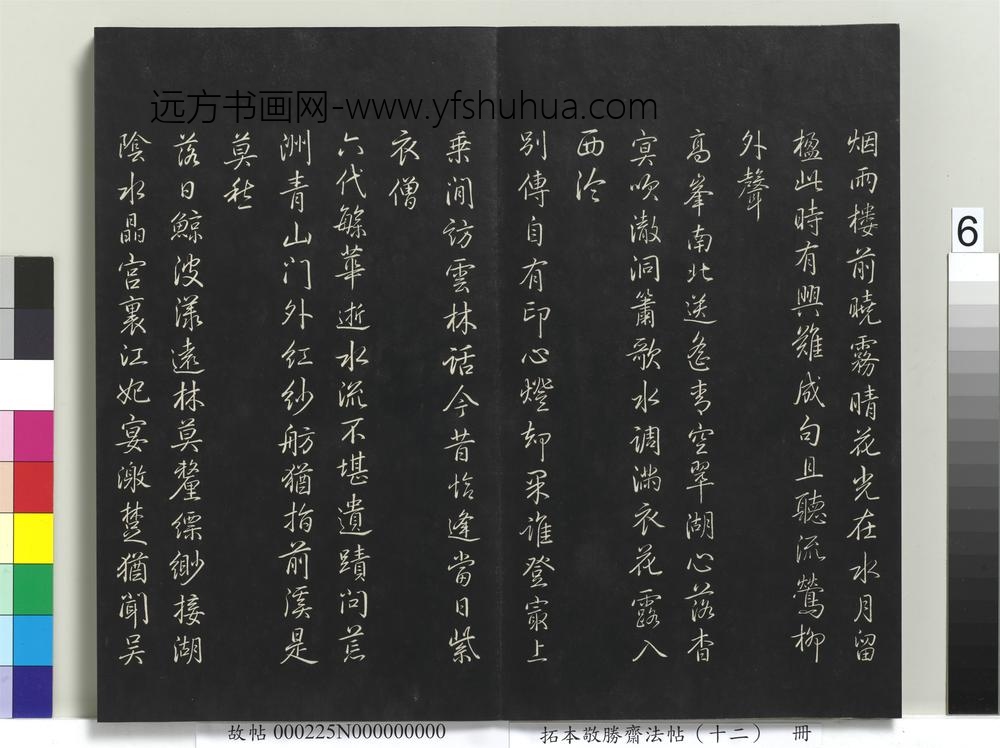 远方书画网-www.yfshuhua.com
烟雨楼前晓霧晴花光在水月留
楹此時有興難成句且聽流鶯柳
外聲
高峯南北送遙青空翠湖心落杳
冥吹澈洞簫歌水调滿衣花露入
西泠
別傳自有印心燈却果誰登最上
乗澗訪雲林話今昔恰逢當日紫
衣僧
六代䋣華逝水流不堪遺蹟问荒
洲青山门外红纱舫猶指前溪是
莫愁
落日鲸波漾遠林莫釐縹缈接湖
陰水晶宮裏江妃宴激楚猶聞吴
6
故帖 000225N000000000
拓本敬勝齋法帖（十二） 冊